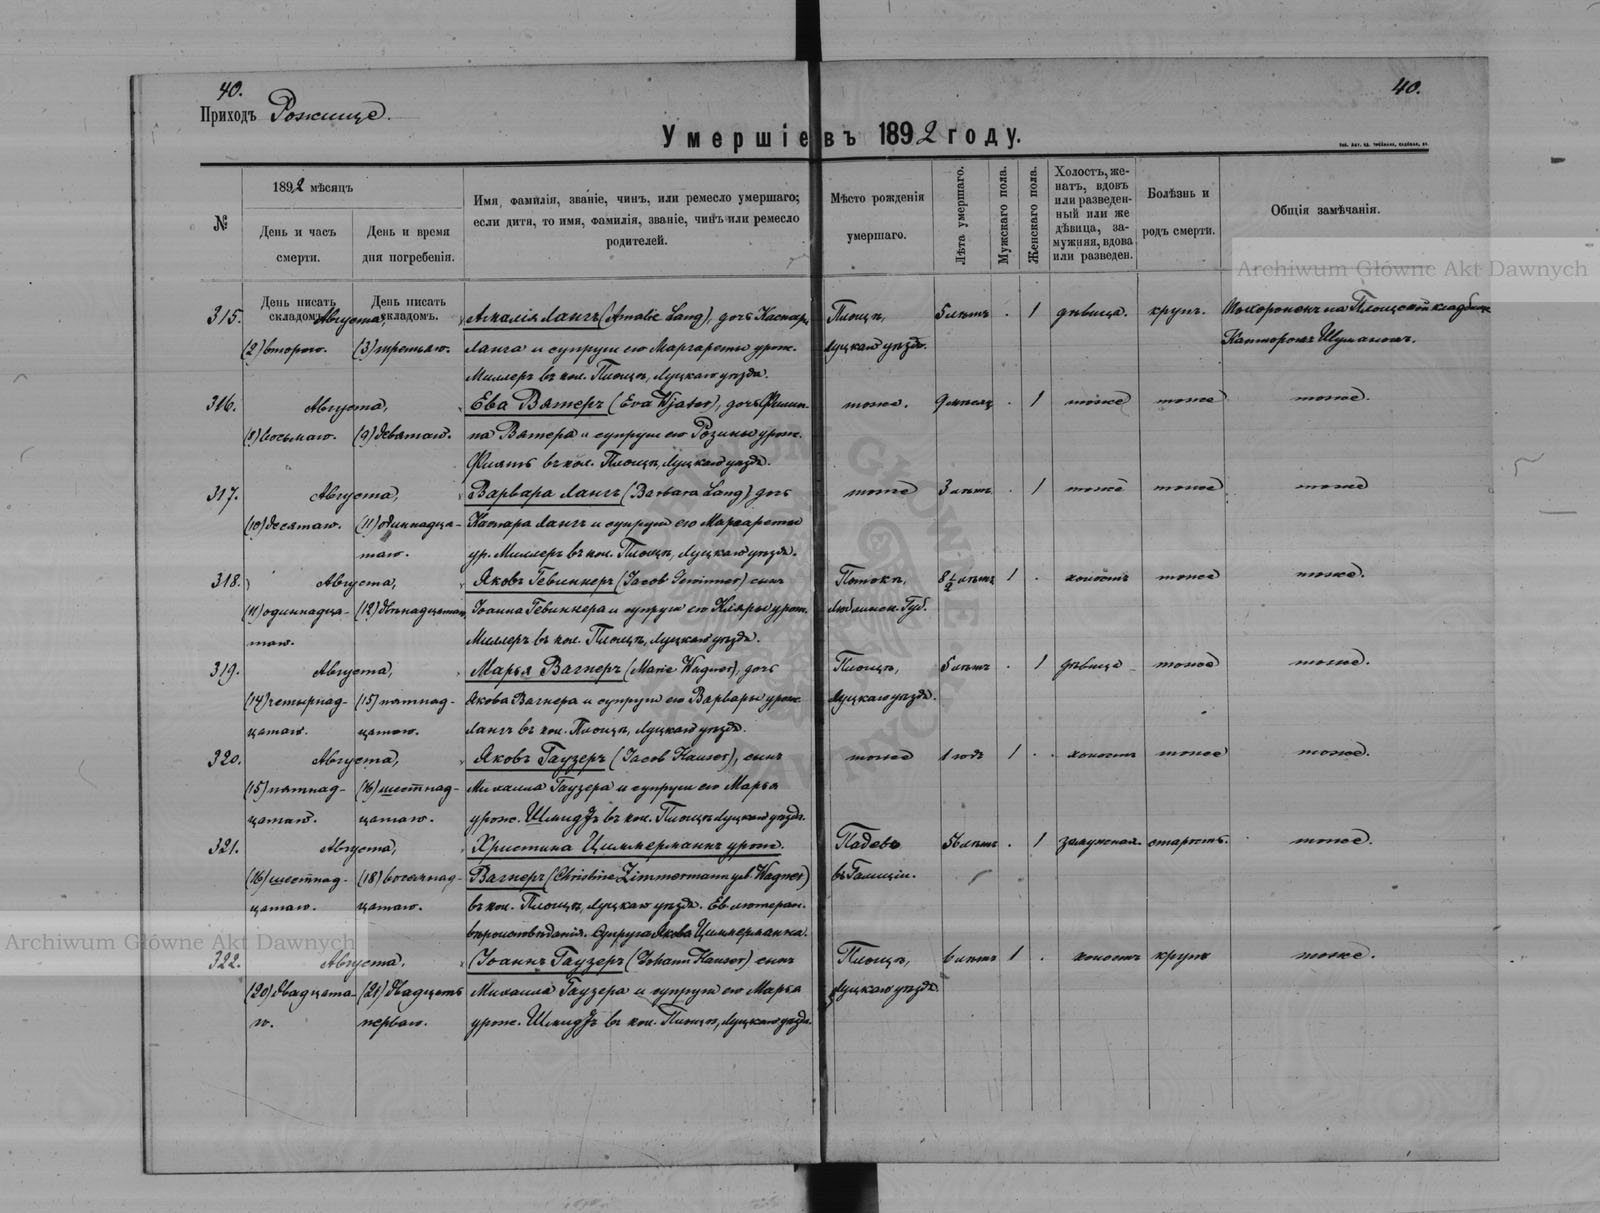 40.
40.
Приходъ Рожище.
Умершіе въ 1892 году.
№
1892 мѣсяцъ
День и часъ смерти.
День и время дня погребенія.
Имя, фамилія, званіе, чинъ, или ремесло умершаго;
если дитя, то имя, фамилія, званіе, чинъ или ремесло
родителей.
Мѣсто рожденія
умершаго.
Лѣта умершаго.
Мужскаго пола.
Женскаго пола.
Холостъ, же-
натъ, вдовъ
или разведен-
ный или же
дѣвица, за-
мужняя, вдова
или разведен.
Болѣзнь и
родъ смерти.
Общія замѣчанія.
Archiwum Główne Akt Dawnych
День писать складомъ.
День писать складомъ.
315. Августа, Амалія Лангъ (Amalie Lang), дочь Каспара Площъ, 5 лѣтъ . 1 дѣвица. крупъ. Похороненъ на Площской кладбищѣ
(2) второго. (3) третьяго. Ланга и супруги его Маргареты урож. Луцкаго уѣзда. Канторомъ Шуманомъ.
Миллеръ въ кол. Площъ, Луцкаго уѣзда.
316. Августа, Ева Вятеръ (Eva Wjater), дочь Филип- тоже. 9 мѣсяц . 1 тоже тоже тоже.
(8) восьмаго. (9) девятаго. па Вятера и супруги его Розины урож.
въ кол. Площъ, Луцкаго уѣзда.
317. Августа, Варвара Лангъ (Barbara Lang) дочь тоже 3 лѣтъ . 1 тоже тоже тоже
(10) десятаго. (11) одиннадца- Каспара Лангъ и супруги его Маргареты
таго. ур. Миллеръ въ кол. Площъ, Луцкаго уѣзда.
318. Августа, Яковъ Гевиннеръ (Jacob Gewinner) сынъ Потокъ, 8 1/2 лѣтъ 1 . холостъ тоже тоже.
(11) одиннадца- (12) двѣнадцатаго. Іоанна Гевиннера и супруги его Клары урож. Люблинск. Губ.
таго. Миллеръ въ кол. Площъ, Луцкаго уѣзда.
319. Августа, Марья Вагнеръ (Marie Wagner), дочь Площъ, 5 лѣтъ . 1 дѣвица тоже тоже.
(14) четырнад- (15) пятнад- Якова Вагнера и супруги его Варвары урож. Луцкаго уѣзда.
цатаго. цатаго. Лангъ въ кол. Площъ, Луцкаго уѣзда.
320. Августа, Яковъ Гаузеръ (Jacob Hauser), сынъ тоже 1 годъ 1 . холостъ тоже тоже.
(15) пятнад- (16) шестнад- Михаила Гаузера и супруги его Марья
цатаго. цатаго. урож. Шмидтъ въ кол. Площъ Луцкаго уѣзда.
321. Августа, Христина Циммерманнъ урож. Падевъ 56 лѣтъ . 1 замужняя. старость. тоже.
(16) шестнад- (18) восемнад- Вагнеръ (Christine Zimmermann geb. Wagner) въ Галиціи.
цатаго. цатаго. въ кол. Площъ, Луцкаго уѣзда. Ев. лютеран.
вѣроисповѣданія. Супруга Якова Циммерманна.
Archiwum Główne Akt Dawnych
322. Августа. Іоаннъ Гаузеръ (Johann Hauser) сынъ Площъ, 6 лѣтъ 1 . холостъ крупъ тоже.
(20) двадцата- (21) двадцать Михаила Гаузера и супруги его Марья Луцкаго уѣзда.
го. перваго. урож. Шмидтъ въ кол. Площъ, Луцкаго уѣзда.